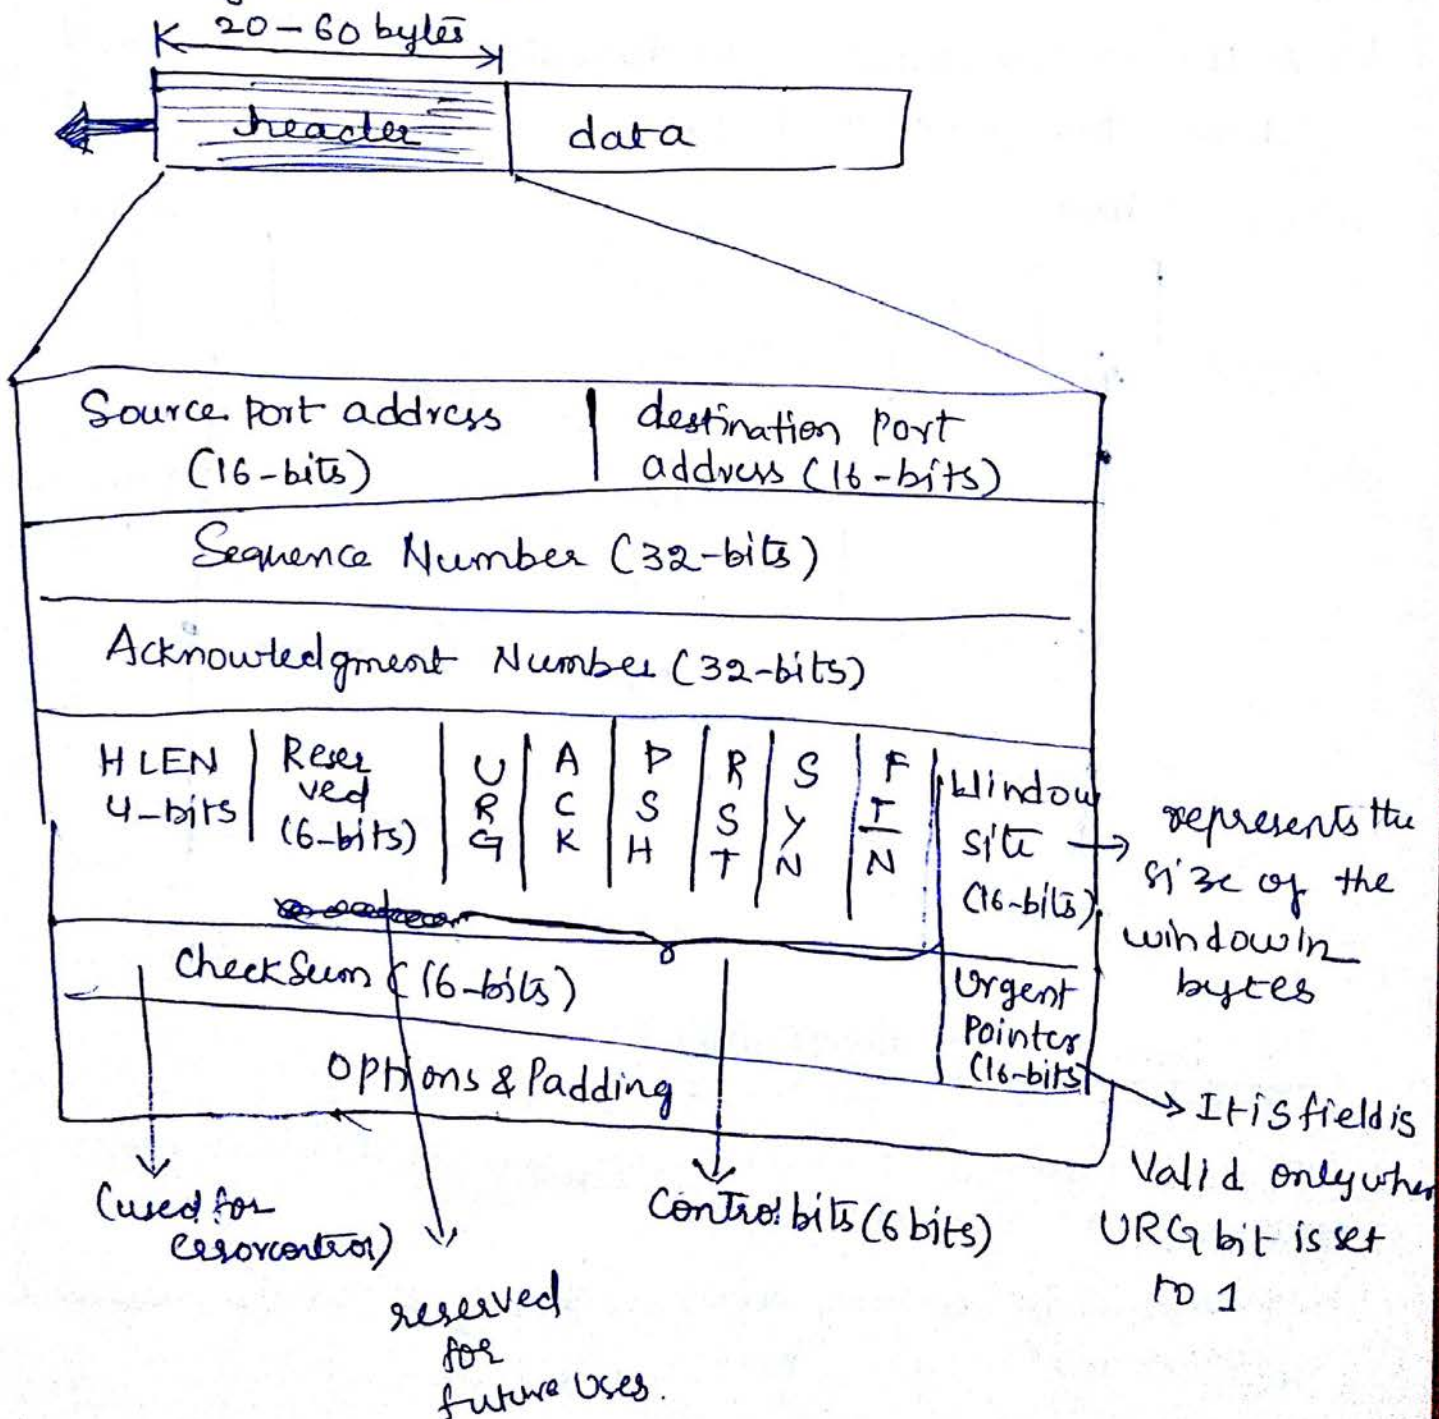 20-60 bytes
header data
Source Port address
(16-bits)
destination Port
address (16-bits)
Sequence Number (32-bits)
Acknowledgment Number (32-bits)
HLEN
4-bits
Reser
ved
(6-bits)
URG
ACK
PSH
RST
SYN
FIN
Window
size
(16-bits)
represents the
size of the
window in
bytes
CheckSum (16-bits)
Urgent
Pointer
(16-bits)
Options & Padding
It is field is
Valid only when
URG bit is set
to 1
(used for
error control)
Control bits (6 bits)
reserved
for
future Uses.